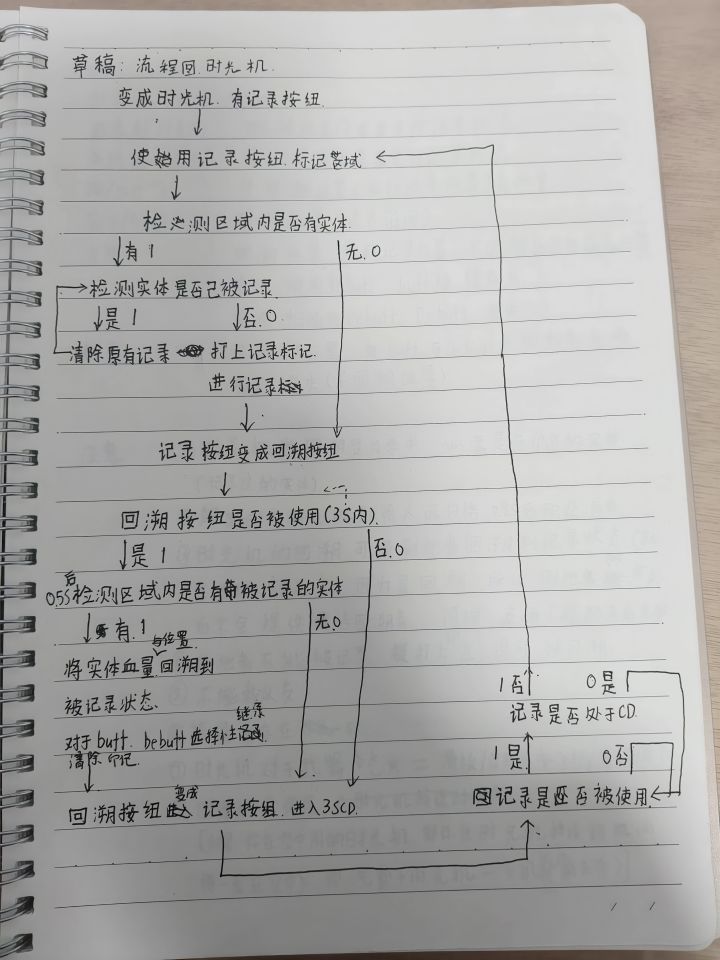 草稿: 流程图.时光机.
变成时光机.有记录按钮.
使用记录按钮.标记区域
检测区域内是否有实体.
有 1
无.0
检测实体是否已被记录.
是 1
否.0
清除原有记录
打上记录标记.
进行记录
记录按钮变成回溯按钮
回溯按钮是否被使用(3S内).
是 1
否.0
0.5S后检测区域内是否有被记录的实体
有.1
无.0
将实体血量与位置回溯到
被记录状态.
对于buff.bebuff选择性继承
清除印记
1 否
0 是
记录是否处于CD.
1 是
0 否
回溯按钮变成记录按钮.进入3SCD.
记录是否被使用